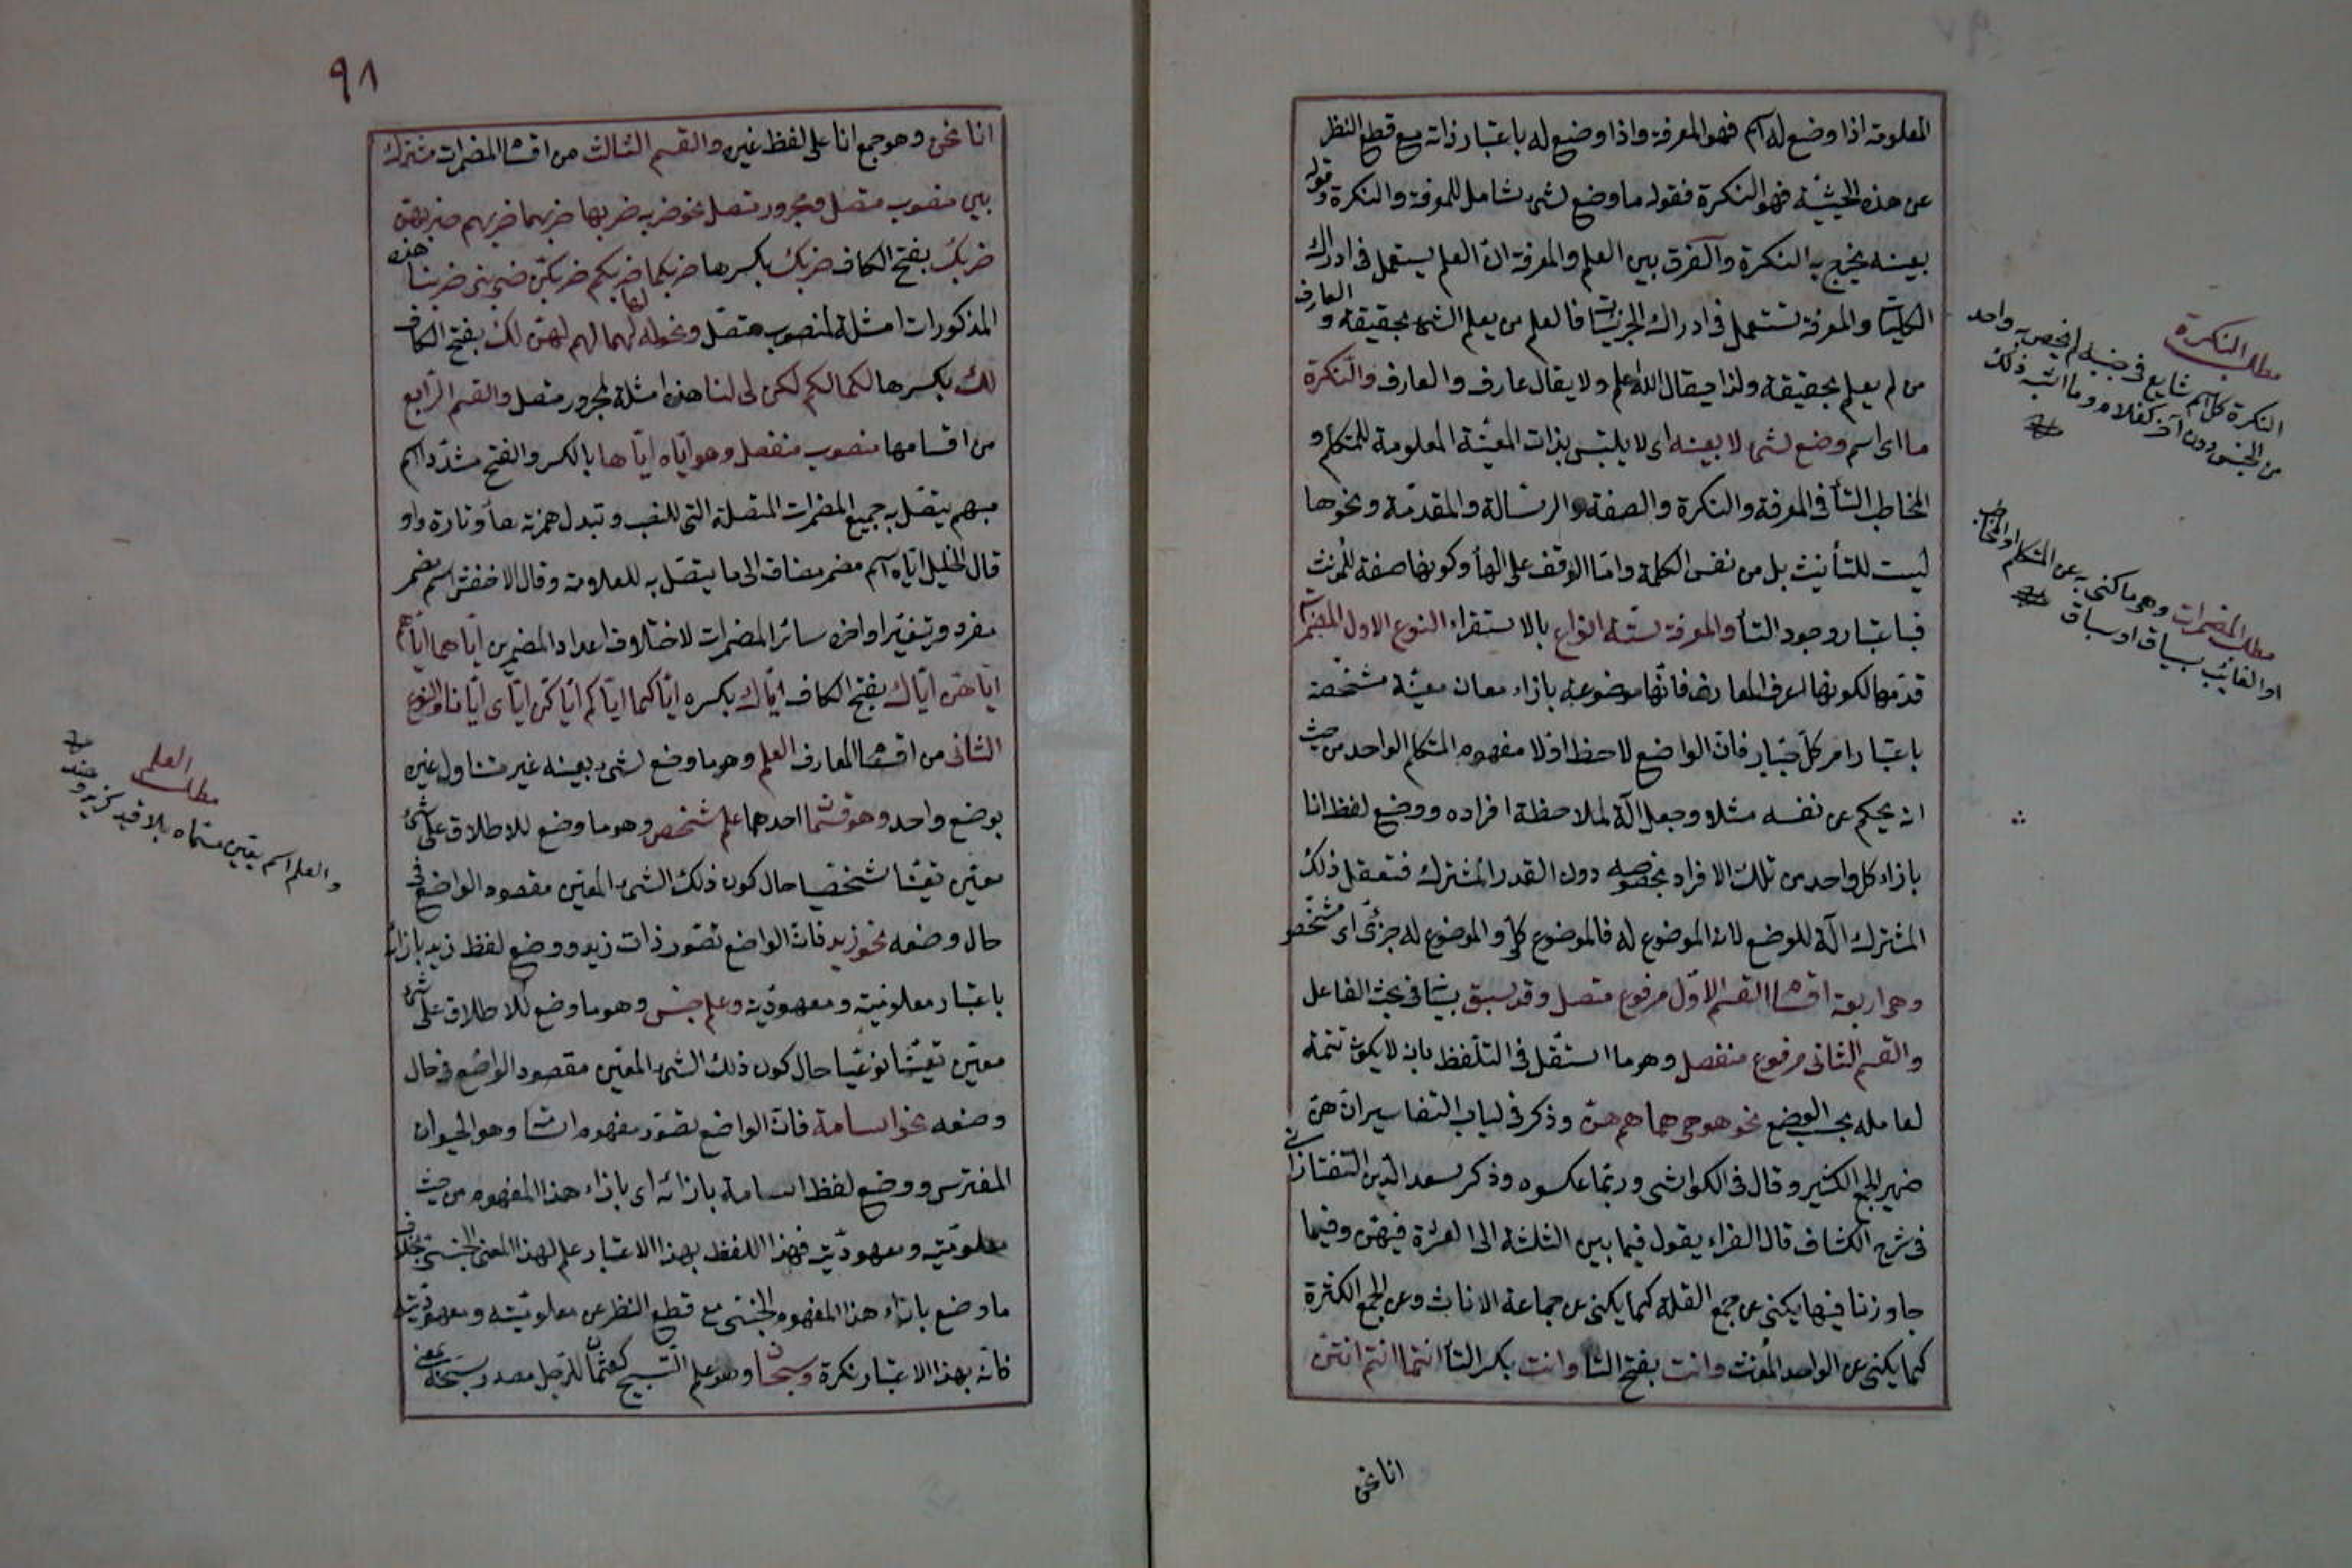 المعلومة اذا وضع له اسم فهو المعرفة واذا وضع له باعتبار ذاته مع قطع النظر
عن هذه الحيثية فهو النكرة فقوله ما وضع لشئ شامل للمعرفة والنكرة وقوله
بعينه يخرج به النكرة والفرق بين العلم والمعرفة ان العلم يستعمل فى ادراك
الكليات والمعرفة تستعمل فى ادراك الجزئيات فالعالم من يعلم الشئ بحقيقته والعارف
من لم يعلم بحقيقته ولذا يقال الله علم ولا يقال عارف والعارف والنكرة
ما اى اسم وضع لشئ لا بعينه اى لا يلتبس بذات المعينة المعلومة للمتكلم و
المخاطب التا فى المعرفة والنكرة والصفة والرسالة والمقدمة ونحوها
ليست للتأنيث بل من نفس الكلمة وامّا الوقف على الهأ وكونها صفة للمؤنث
فباعتبار وجود التأ والمعرفة ستة انواع بالاستقراء النوع الاول المضمرات
قدمها لكونها اعرف المعارف فانّها موضوعة بازاء معان معينة مشخصة
باعتبار امر كلّى فان الواضع لاحظ اولا مفهوم المتكلم الواحد من حيث
انه يحكم عن نفسه مثلا وجعل آلة لملاحظة افراده ووضع لفظ انا
بازاء كل واحد من تلك الافراد بخصوصه دون القدر المشترك فتعقل ذلك
المشترك آلة للوضع لا انه الموضوع له فالموضوع كلى والموضوع له جزئى اى مشخص
وهى اربعة اقسا القسم الاول مرفوع متصل وقد سبق بيانه فى بحث الفاعل
والقسم الثانى مرفوع منفصل وهو ما استقل فى التلفظ بان لا يكون تتمة
لعامله بحسب الوضع نحو هو هى هما هم هنّ وذكر فى لباب التفاسير ان هن
ضمير الجمع الكثير وقال فى الكواشى وربّما عكسوه وذكر سعد الدين التفتازانى
فى شرح الكشاف قال الفراء يقول فيما بين الثلثة الى العشرة فيهنّ وفيما
جاوزتا فيها يكنى عن جمع القلة كما يكنى عن جماعة الاناث وعن الجمع الكثرة
كما يكنى عن الواحد المؤنث وانت بفتح التا وانت بكسر التأ انتما انتم انتن
انا نحن
مطلب النكرة
النكرة كل اسم شايع فى جنسه لم يختص به واحد
من الجنس دون آخر كغلام وما اشبه ذلك
مطلب المضمرات وهو ما كنى به عن المتكلم او المخاطب
او الغائب بسياق او سباق
٩٨
انا نحن وهو جمع انا على لفظ غيره والقسم الثالث من اقسا المضمرات مشترك
بين منصوب متصل ومجرور متصل نحو ضربه ضربها ضربهما ضربهم ضربهن
ضربك بفتح الكاف ضربك بكسرها ضربكما ضربكم ضربكنّ ضربنى ضربنا هذه
المذكورات امثلة لمنصوب متصل ونحو له لها لهما لهم لهنّ لك بفتح الكاف
لك بكسرها لكما لكم لكن لى لنا هذه امثلة لمجرور متصل والقسم الرّابع
من اقسامها منصوب منفصل وهو ايّاه ايّاها بالكسر والفتح مشدّد اسم
مبهم يتصل به جميع المضمرات المتصلة التى للنصب وتبدل همزته هأ وتارة واو
قال الخليل ايّاه اسم مضمر مضاف الى ما يتصل به للعلامة وقال الاخفش اسم مضمر
مفرد وتغيّر اواخره سائر المضمرات لاختلاف اعداد المضمرين ايّاهما ايّاهم
ايّاهنّ ايّاك بفتح الكاف ايّاك بكسره ايّاكما ايّاكم ايّاكن ايّاى ايّانا والنوع
الثانى من اقسا المعارف العلم وهو ما وضع لشئ بعينه غير متناول غيره
بوضع واحد وهو قسما احدهما علم شخص وهو ما وضع للاطلاق على شئ
معيّن تعيّنا شخصيا حال كون ذلك الشئ المعيّن مقصود الواضع فى
حال وضعه نحو زيد فانّ الواضع تصور ذات زيد ووضع لفظ زيد بازائه
باعتبار معلوميته ومعهوديّته وعلم جنس وهو ما وضع للاطلاق على شئ
معيّن تعيّنا نوعيّا حال كون ذلك الشئ المعيّن مقصود الواضع فى حال
وضعه نحو اسامة فانّ الواضع تصوّر مفهوم اسامة وهو الحيوان
المفترس ووضع لفظ اسامة بازائه اى بازاء هذا المفهوم من حيث
معلوميّته ومعهوديّته فهذا اللفظ بهذا الاعتبار علم لهذا المعنى الجنسى بخلاف
ما وضع بازاء هذا المفهوم الجنسى مع قطع النظر عن معلوميّته ومعهوديّته
فانّه بهذا الاعتبار نكرة وسبحان وهو علم التسبيح كعثمان للرجل مصدر سبحته
مطلب العلم
والعلم اسم يعيّن مسمّاه بلا قيد كزيد وهند